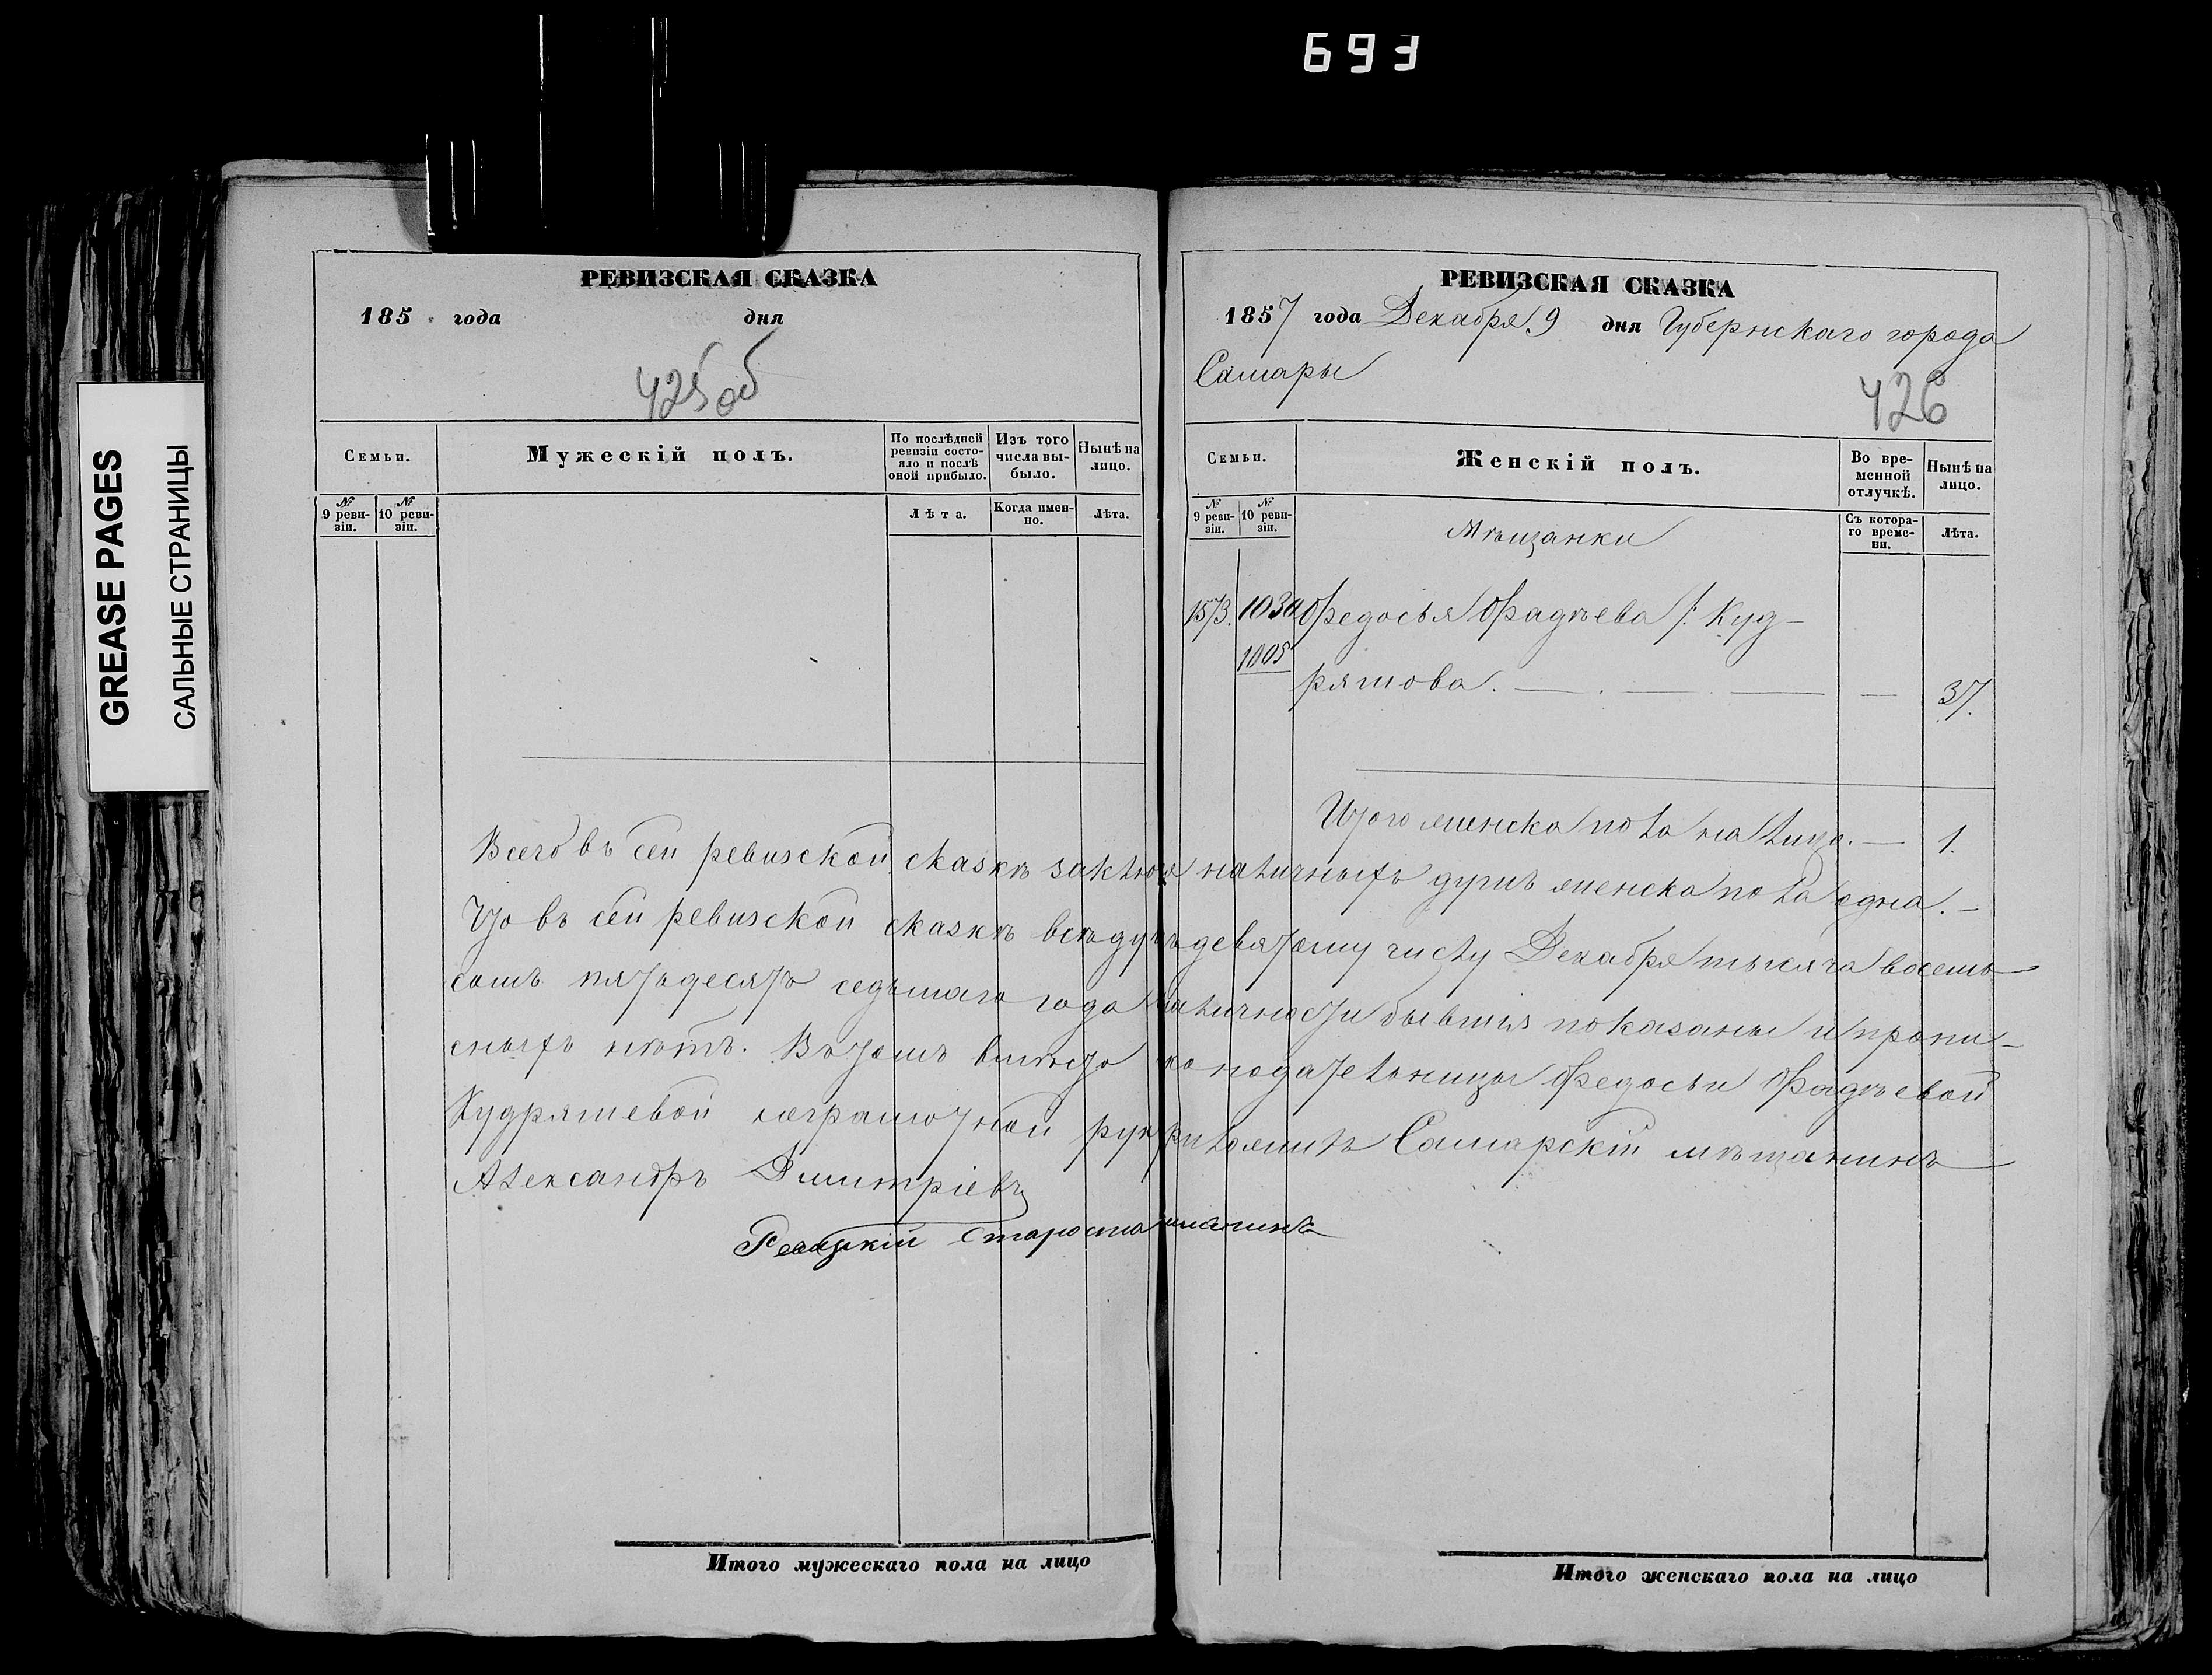 693
GREASE PAGES
САЛЬНЫЕ СТРАНИЦЫ
РЕВИЗСКАЯ СКАЗКА
185 года дня
425об
Семьи.
Мужескій полъ.
По послѣдней ревизіи состояло и послѣ оной прибыло.
Изъ того числа выбыло.
Нынѣ на лицо.
№ 9 ревизіи.
№ 10 ревизіи.
Лѣта.
Когда именно.
Лѣта.
РЕВИЗСКАЯ СКАЗКА
1857 года Декабря 9 дня Губернскаго города
Самары
426
Семьи.
Женскій полъ.
Во временной отлучкѣ.
Нынѣ на лицо.
№ 9 ревизіи.
№ 10 ревизіи.
Съ котораго времени.
Лѣта.
Мѣщанки
1573. 1030 Федосья Фадѣева /: Куд-
1005
ряшова. — — — — 37.
Итого женска пола на лицо. — 1.
Всего въ сей ревизской сказкѣ заключ наличныхъ душъ женска пола одна. —
Что въ сей ревизской сказкѣ всѣ душъ девятому числу Декабря тысяча восемь
сотъ пятьдесятъ седьмаго года наличности бывшія показаны и пропи-
сныхъ нѣтъ. Въ томъ вмѣсто подательницы Федосьи Фадѣевой
Кудряшевой неграмотной рук приложилъ Самарскій мѣщанинъ
Александръ Дмитріевъ
Староста
Итого мужескаго пола на лицо
Итого женскаго пола на лицо